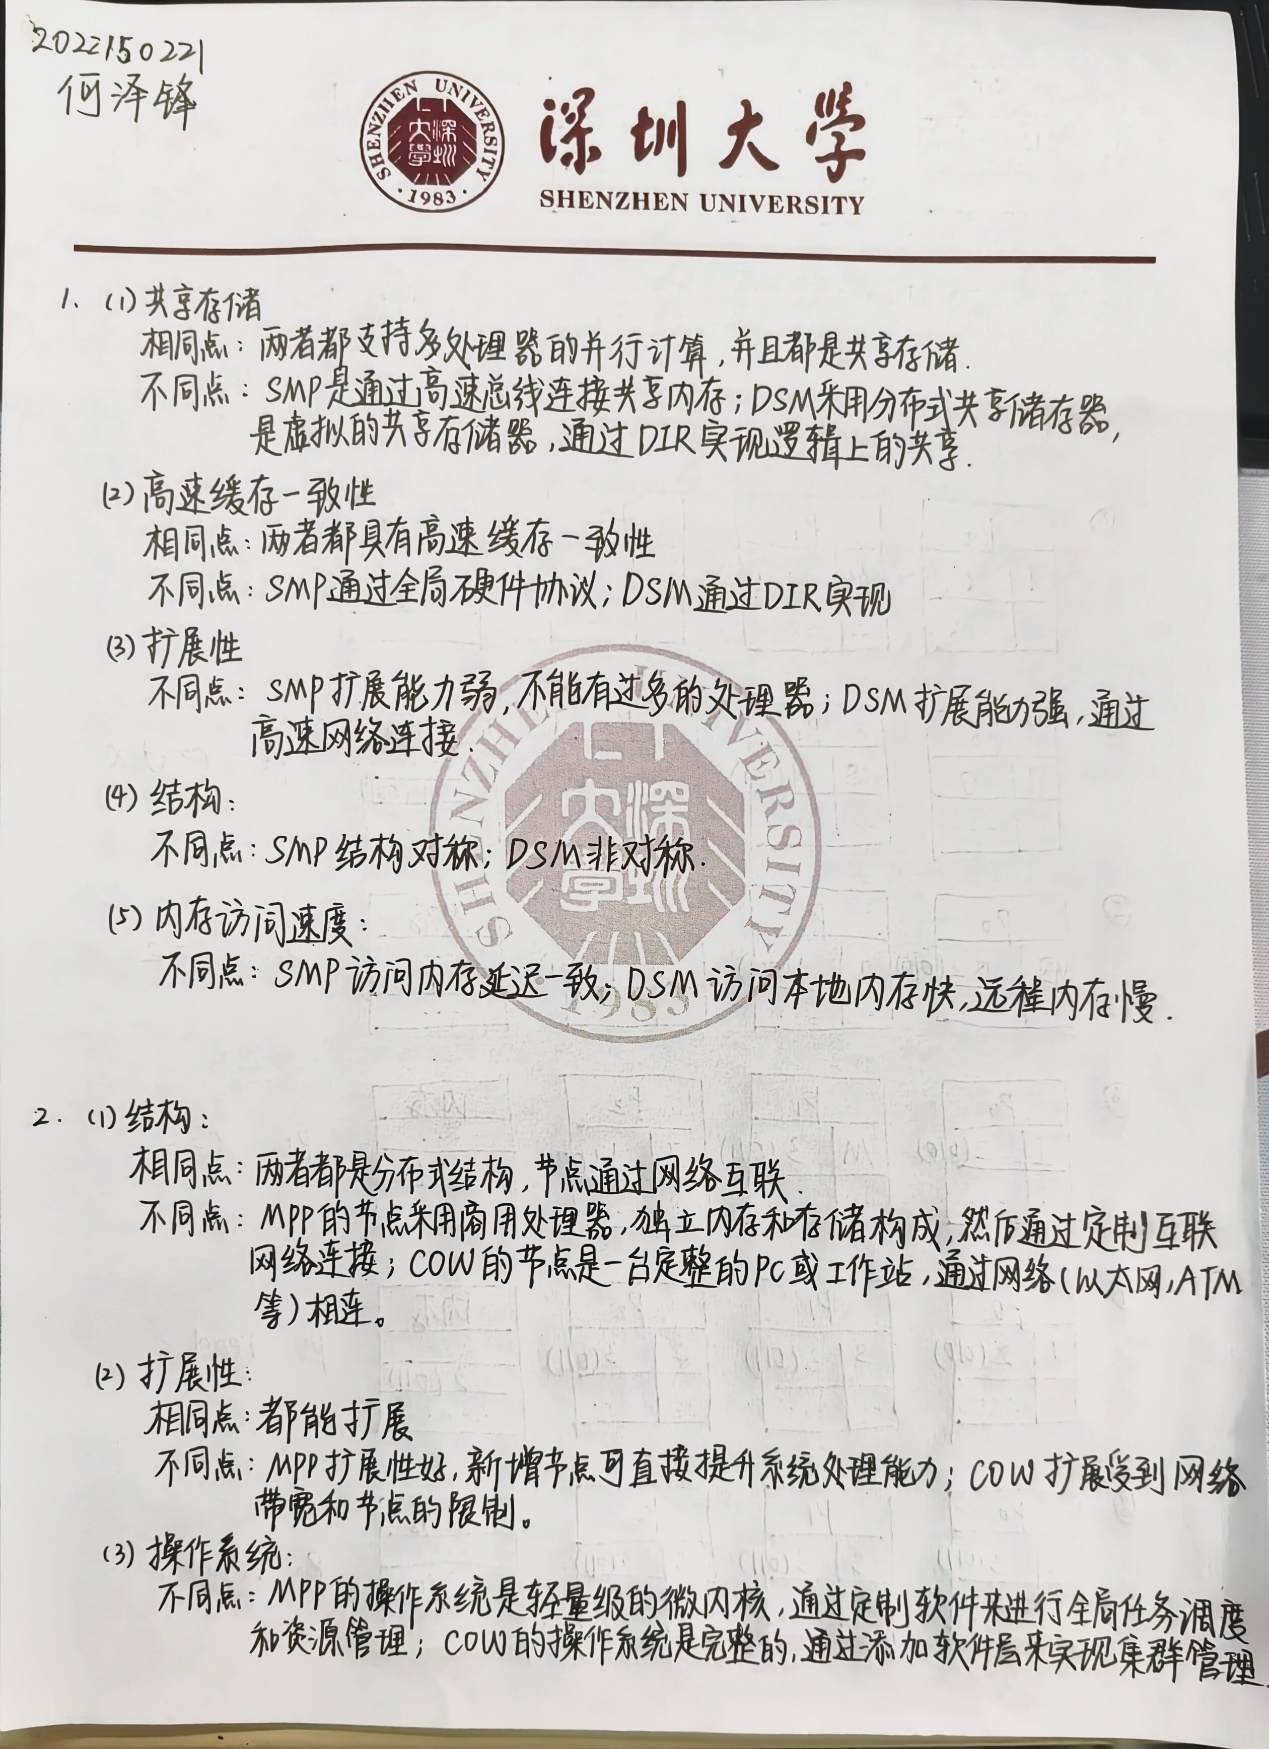 2022150221
何泽锋
SHENZHEN UNIVERSITY
深圳大学
1983
深圳大学
SHENZHEN UNIVERSITY
1. (1) 共享存储
相同点: 两者都支持多处理器的并行计算,并且都是共享存储.
不同点: SMP是通过高速总线连接共享内存; DSM采用分布式共享储存器,
是虚拟的共享存储器,通过DIR实现逻辑上的共享.
(2) 高速缓存一致性
相同点: 两者都具有高速缓存一致性
不同点: SMP通过全局硬件协议; DSM通过DIR实现
(3) 扩展性
不同点: SMP扩展能力弱,不能有过多的处理器; DSM扩展能力强,通过
高速网络连接.
(4) 结构:
不同点: SMP结构对称; DSM非对称.
(5) 内存访问速度:
不同点: SMP访问内存延迟一致; DSM访问本地内存快,远程内存慢.
SHENZHEN UNIVERSITY
深圳大学
1983
2. (1) 结构:
相同点: 两者都是分布式结构,节点通过网络互联.
不同点: MPP的节点采用商用处理器,独立内存和存储构成,然后通过定制互联
网络连接; COW的节点是一台完整的PC或工作站,通过网络(以太网,ATM
等)相连。
(2) 扩展性:
相同点: 都能扩展
不同点: MPP扩展性好,新增节点可直接提升系统处理能力; COW扩展受到网络
带宽和节点的限制。
(3) 操作系统:
不同点: MPP的操作系统是轻量级的微内核,通过定制软件来进行全局任务调度
和资源管理; COW的操作系统是完整的,通过添加软件层来实现集群管理.